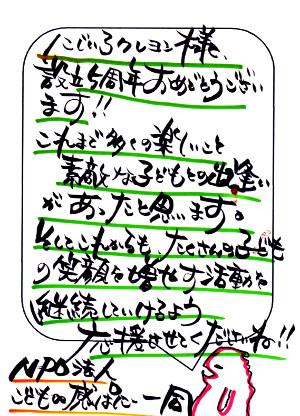 にじいろクレヨン様、
設立5周年おめでとうござい
ます!!
これまで多くの楽しいこと
素敵な子どもとの出逢い
があったと思います。
そしてこれからも、たくさんの子ども
の笑顔を増やす活動を
継続していけるよう
応援させてくださいね!!
NPO法人
こどもの感性 一同